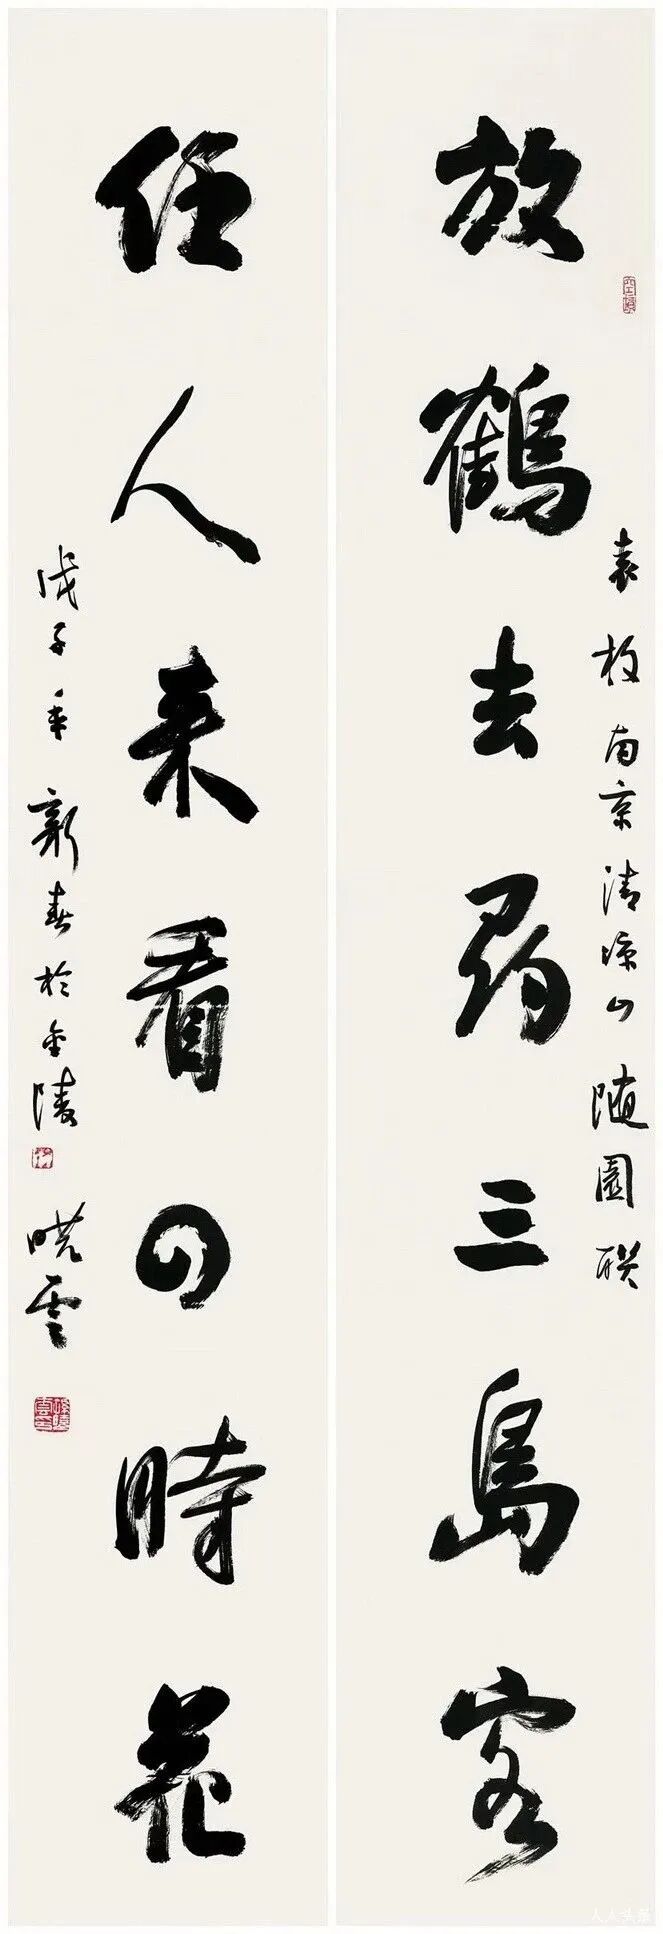 袁枚南京清凉山随園联
放鶴去尋三島客
任人来看四時花
戊子年新春於金陵
晓雲
人人头条